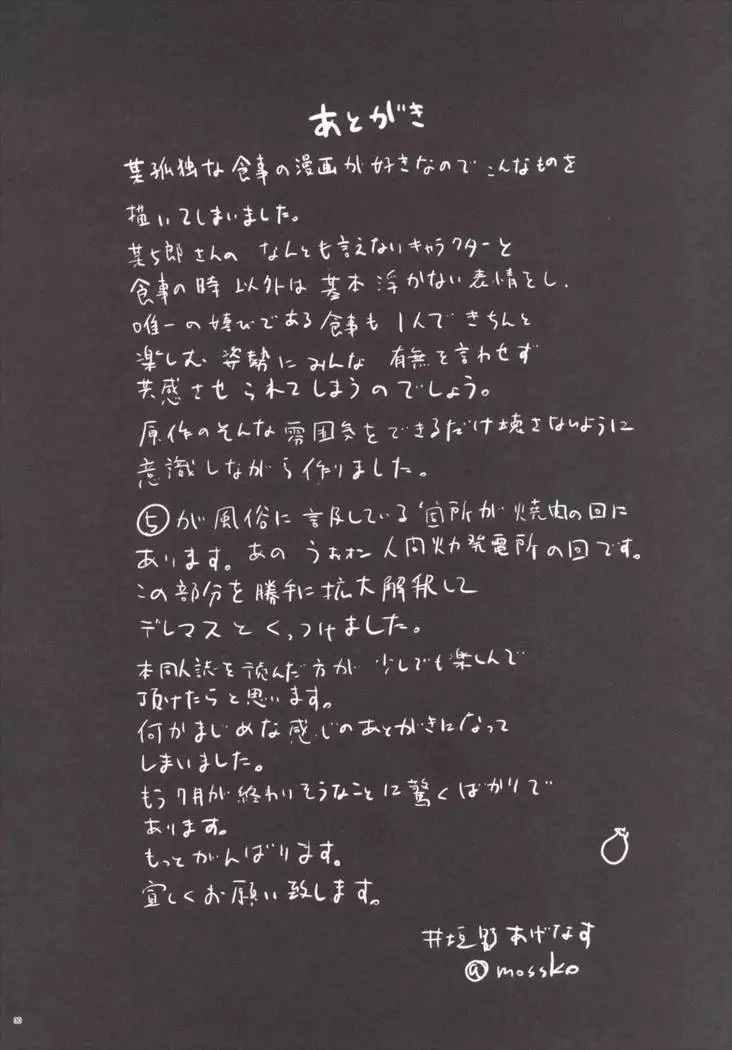 あとがき
某孤独な食事の漫画が好きなのでこんなものを
描いてしまいました。
某5郎さんの なんとも言えないキャラクターと
食事の時以外は基本浮かない表情をし、
唯一の喜びである食事も1人できちんと
楽しむ姿勢にみんな 有無を言わせず
共感させられてしまうのでしょう。
原作のそんな雰囲気をできるだけ壊さないように
意識しながら作りました。
⑤が風俗に言及している箇所が焼肉の回に
あります。あの うぉォン 人間火力発電所の回です。
この部分を勝手に拡大解釈して
デレマスとくっつけました。
本同人誌を読んだ方が 少しでも楽しんで
頂けたらと思います。
何かまじめな感じのあとがきになって
しまいました。
もう7月が終わりそうなことに驚くばかりで
あります。
もっとがんばります。
宜しくお願い致します。
井垣野あげなす
@mossko
30